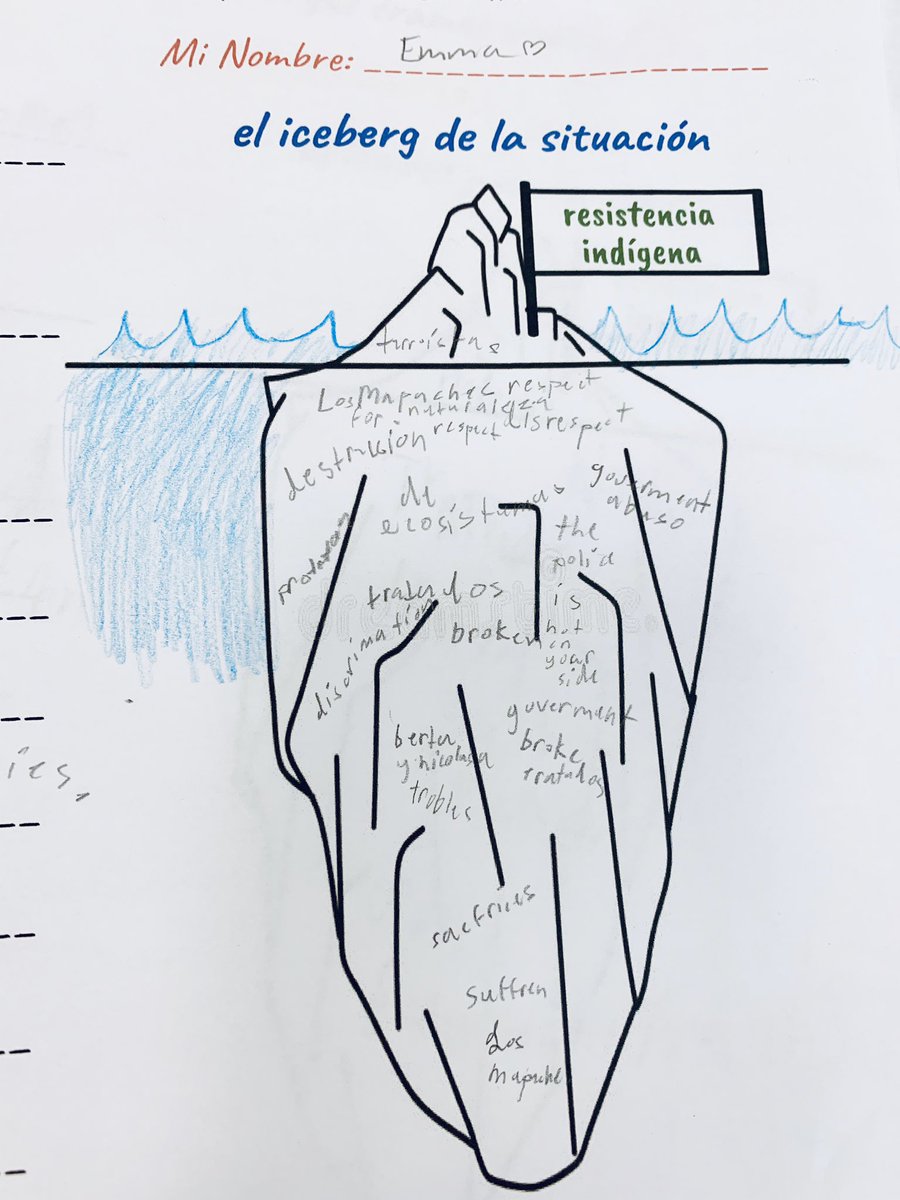 Mi Nombre: Emma
el iceberg de la situación
resistencia
indígena
turistas
Los Mapaches respect
for naturaleza
respect disrespect
destruision
de
ecosistemas
goverment
abuso
the
police
is
not
on
your
side
tratados
broken
discrimation
goverment
broke
tratados
berta
y nicolasa
trobles
sacfriies
suffren
Los
mapuche
ies,